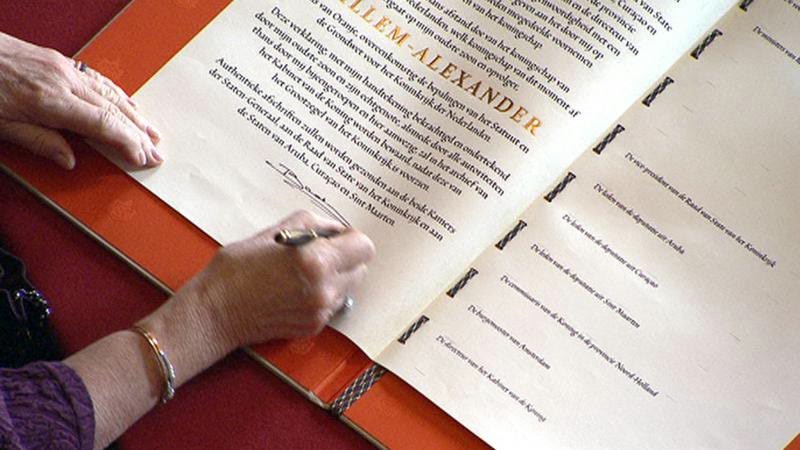 van State
Curaçao en
en de directeur van
voornemen
door mij op
afstand doe van het koningschap van
Nederlanden welk koningschap van dit moment af
op mijn oudste zoon en opvolger,
LLEM-ALEXANDER
van Oranje, overeenkomstig de bepalingen van het Statuut en
de Grondwet voor het Koninkrijk der Nederlanden.
Deze verklaring, met mijn handtekening bekrachtigd en ondertekend
door mijn oudste zoon en zijn echtgenote, alsmede door alle autoriteiten
thans door mij bijeengeroepen en hier aanwezig, zal in het archief van
het Kabinet van de Koning worden bewaard, nadat deze van
het Grootzegel van het Koninkrijk is voorzien.
Authentieke afschriften zullen worden gezonden aan de beide Kamers
der Staten-Generaal, aan de Raad van State van het Koninkrijk en aan
de Staten van Aruba, Curaçao en Sint Maarten
De vice-president van de Raad van State van het Koninkrijk
De leden van de deputatie uit Aruba
De leden van de deputatie uit Curaçao
De leden van de deputatie uit Sint Maarten
De commissaris van de Koning in de provincie Noord-Holland
De burgemeester van Amsterdam
De directeur van het Kabinet van de Koning